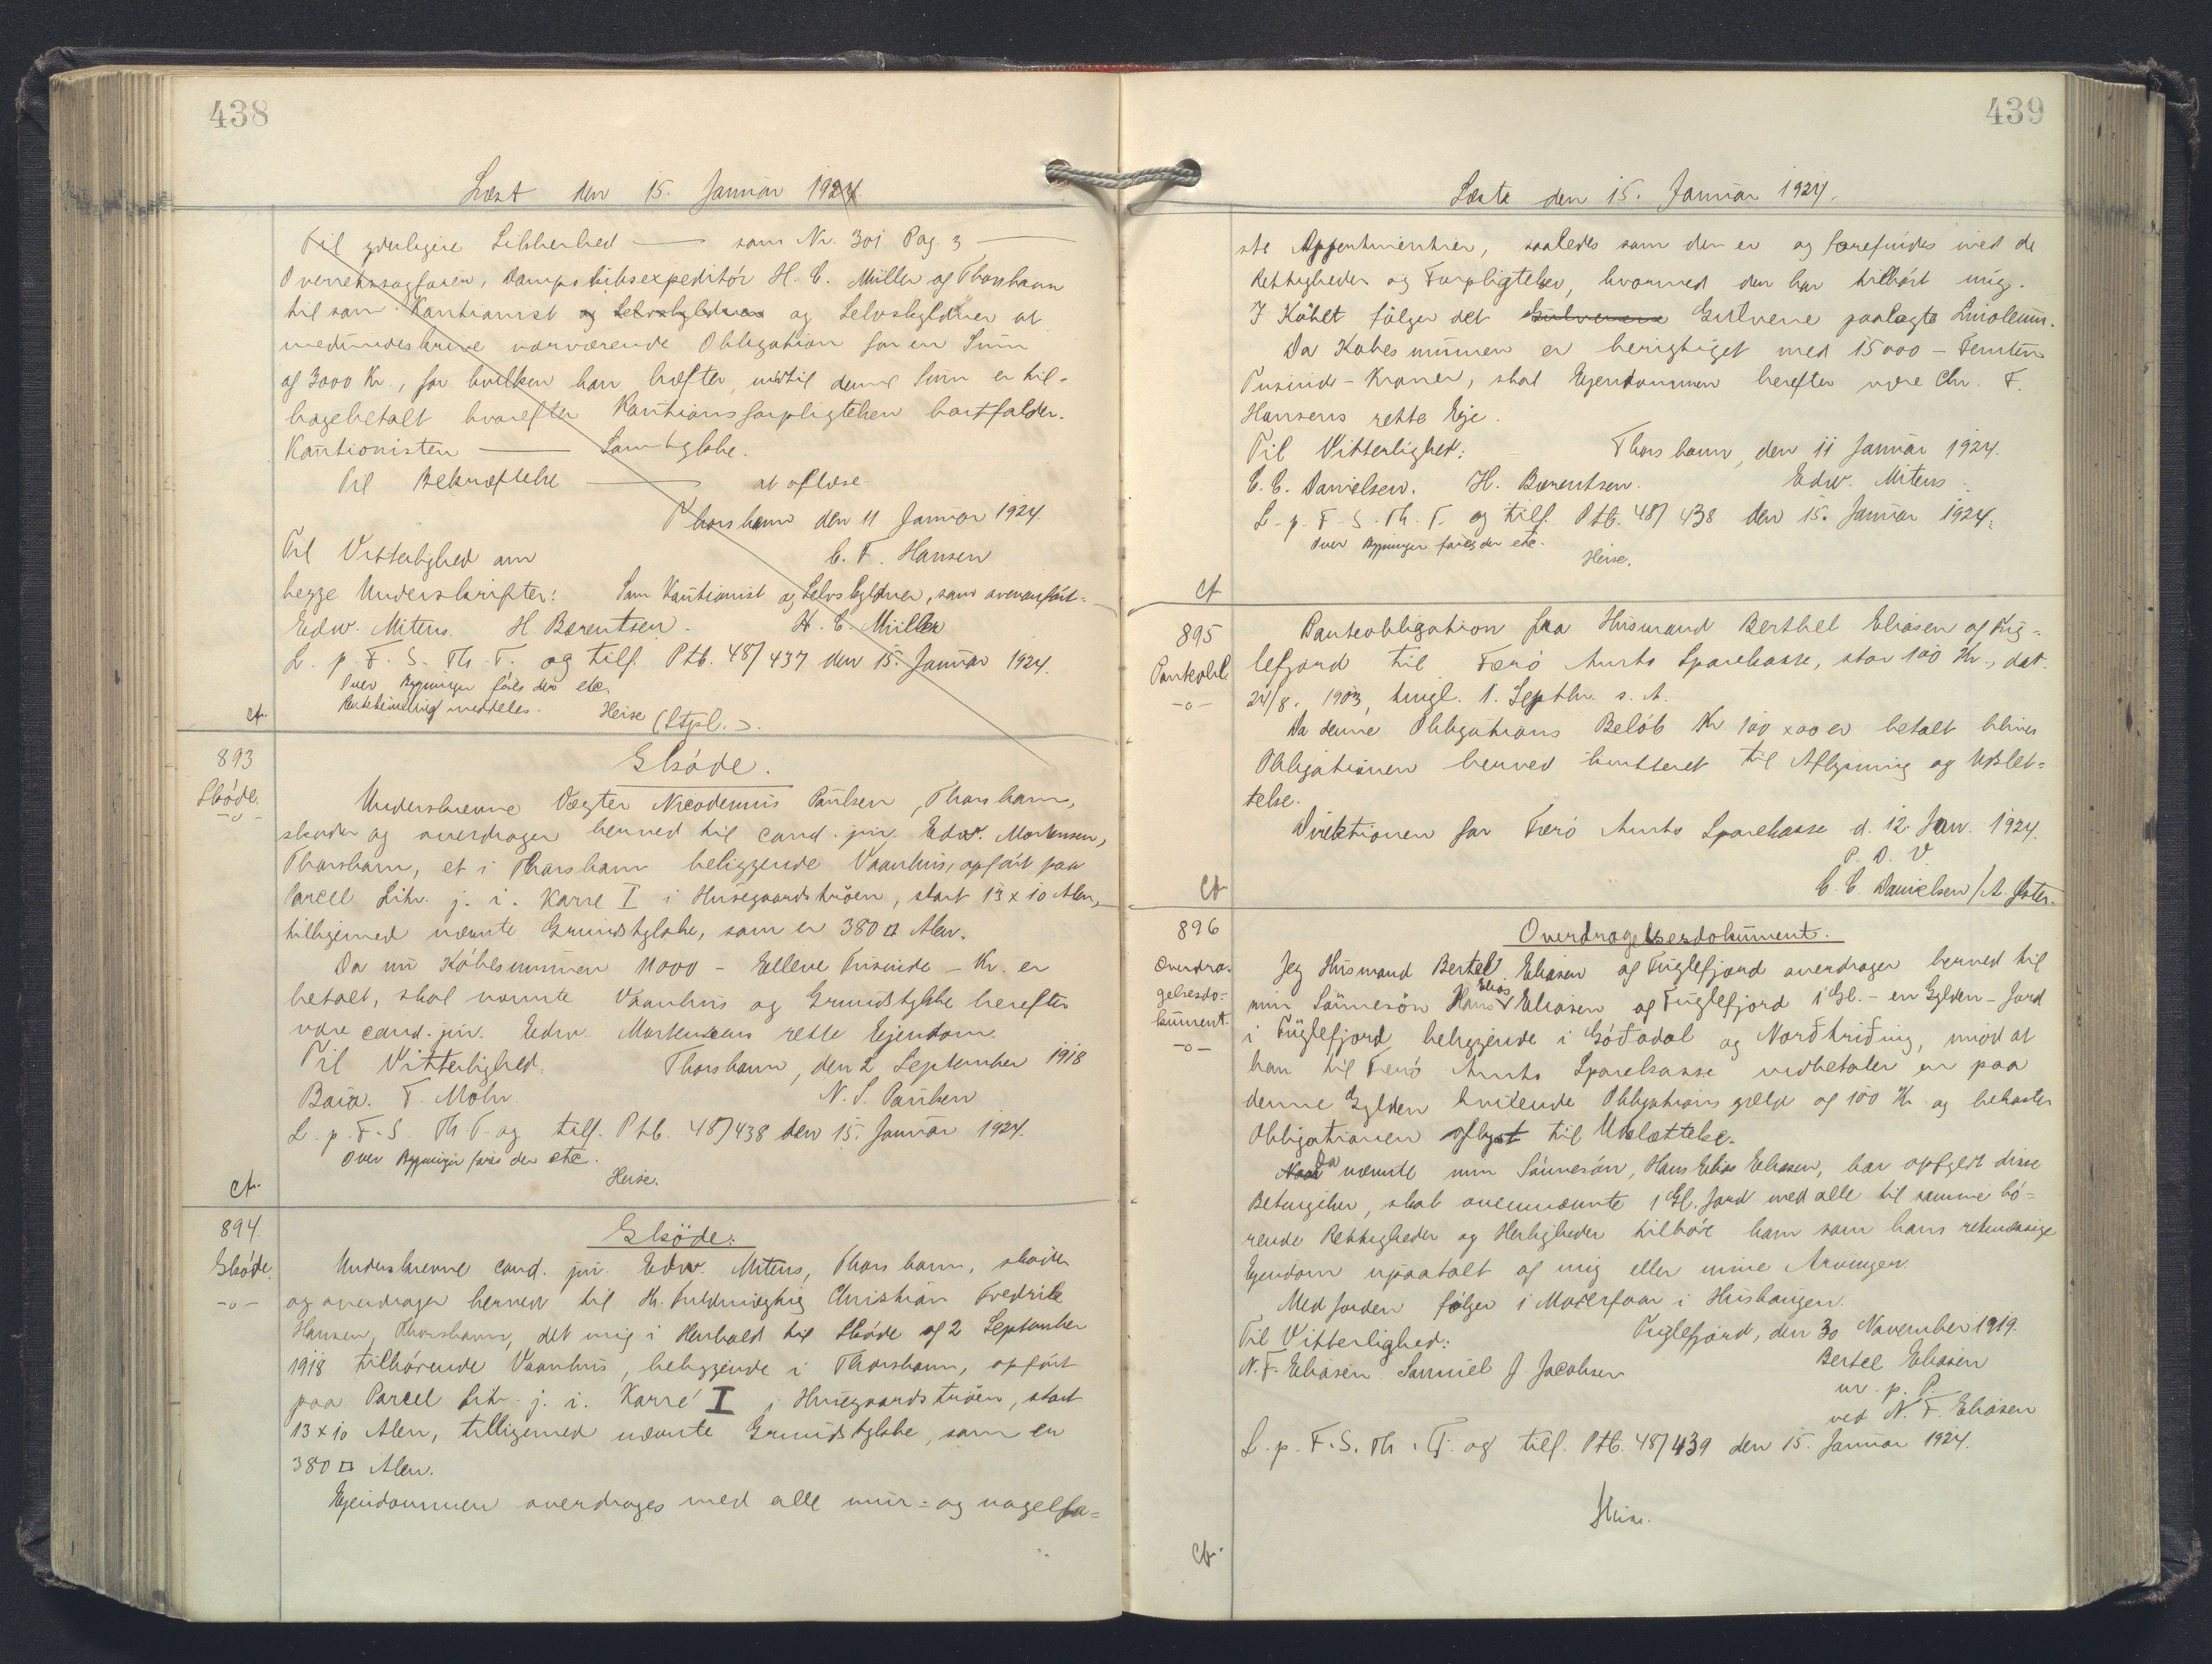 438
Læst den 15. Januar 1924
Til yderligere Sikkerhed — som Nr. 301 Pag. 3 —
Overretssagfører, Dampskibsexpeditör H. C. Müller af Thorshavn
til som Kautionist og Selvskyldner og Selvskyldner at
medunderskrive nærværende Obligation for en Sum
af 3000 Kr., for hvilken han hæfter indtil denne Sum er til-
bagebetalt hvorefter Kautionsforpligtelsen bortfalder.
Kautionisten — Samtykke.
Til Bekræftelse — at aflæse
Thorshavn den 11 Januar 1924.
Til Vitterlighed om C. F. Hansen
begge Underskrifter: Som Kautionist og Selvskyldner, som ovenanfört.
Edw. Mitens. H. Bærentsen. H. C. Müller
L. p. F. S. Th. T. og tilf. Ptb. 48/437 den 15. Januar 1924.
Over Bygninger föres der etc.
meddeles. Heise (Stpl.).
ct.
893
Sköde.
-o-
Sköde.
Underskrevne Vægter Nicodemus Paulsen, Thorshavn,
skøder og overdrager herved til cand. jur. Edw. Mortensen,
Thorshavn, et i Thorshavn beliggende Vaanhus, opfört paa
Parcel Litr. j. i. Karre I i Husegaardstrøen, stort 13 x 10 Alen,
tilligemed nævnte Grundstykke, som er 380 □ Alen.
Da nu Köbesummen 11000 - Elleve Tusinde - Kr. er
betalt, skal nævnte Vaanhus og Grundstykke herefter
være cand. jur. Edw. Mortensens rette Ejendom.
Til Vitterlighed. Thorshavn, den 2 September 1918
F. Mohr. N. S. Paulsen
L. p. F. S. Th T. og tilf. Ptb. 48/438 den 15. Januar 1924.
Over Bygninger föres der etc.
Heise.
ct.
894.
Sköde.
-o-
Sköde.
Underskrevne cand. jur. Edw. Mitens, Thorshavn, sköder
og overdrager herved til Hr. Fuldmægtig Christian Fredrik
Hansen, Thorshavn, det mig i Henhold til Sköde af 2 September
1918 tilhörende Vaanhus, beliggende i Thorshavn, opfört
paa Parcel Litr. j. i. Karré I i Husegaardstrøen, stort
13 x 10 Alen, tilligemed nævnte Grundstykke, som er
380 □ Alen.
Ejendommen overdrages med alle mur- og nagelfa-
439
Læste den 15. Januar 1924.
ste Appertinentier, saaledes som den er og forefindes med de
Rettigheder og Forpligtelser, hvormed den har tilhört mig.
I Köbet fölger det Gulvene Gulvene paalagte Linoleum.
Da Köbesummen er berigtiget med 15000 - Femten
Tusinde - Kroner, skal Ejendommen herefter være Chr. F.
Hansens rette Eje.
Til Vitterlighed: Thorshavn, den 11 Januar 1924.
C. C. Danielsen. H. Bærentsen. Edw. Mitens.
L. p. F. S. Th. T. og tilf. Ptb. 48/438 den 15. Januar 1924.
Over Bygninger föres der etc.
Heise.
ct
895
Panteobl.
-o-
Panteobligation fra Husmand Berthel Eliasen af Fug-
lefjord til Færö Amts Sparekasse, stor 100 Kr., dat.
24/8. 1903, tingl. 1. Septbr. s. A.
Da denne Obligations Belöb Kr 100 x 00 er betalt bliver
Obligationen herved kvitteret til Aflysning og Udslet-
telse.
Direktionen for Færö Amts Sparekasse d. 12. Jan. 1924.
P. D. V.
C. C. Danielsen/
ct
896
Overdra-
gelsesdo-
kument.
-o-
Overdragelsesdokument.
Jeg Husmand Bertel Eliasen af Fuglefjord overdrager herved til
min Sönnesön Hans Elias Eliasen af Fuglefjord 1 Gl. - en Gylden - Jord
i Fuglefjord beliggende i Góðadal og Norðtriðing, imod at
han til Færö Amts Sparekasse indbetaler en paa
denne Gylden hvilende Obligationsgæld af 100 Kr. og bekoster
Obligationen aflyst til Udslættelse.
Naar Da nævnte min Sönnesön, Hans Elias Eliasen, har opfyldt disse
Betingelser, skal ovennævnte 1 Gl. Jord med alle til samme hö-
rende Rettigheder og Herligheder tilhöre ham som hans retmæssige
Ejendom upaatalt af mig eller mine Arvinger.
Med Jorden fölger 1 i Hushaugen.
Til Vitterlighed: Fuglefjord, den 30 November 1919.
N. F. Eliasen. Samuel J. Jacobsen Bertel Eliasen
m. p. P.
ved N. F. Eliasen
L. p. F. S. Th. T. og tilf. Ptb. 48/439 den 15. Januar 1924.
Heise.
ct.